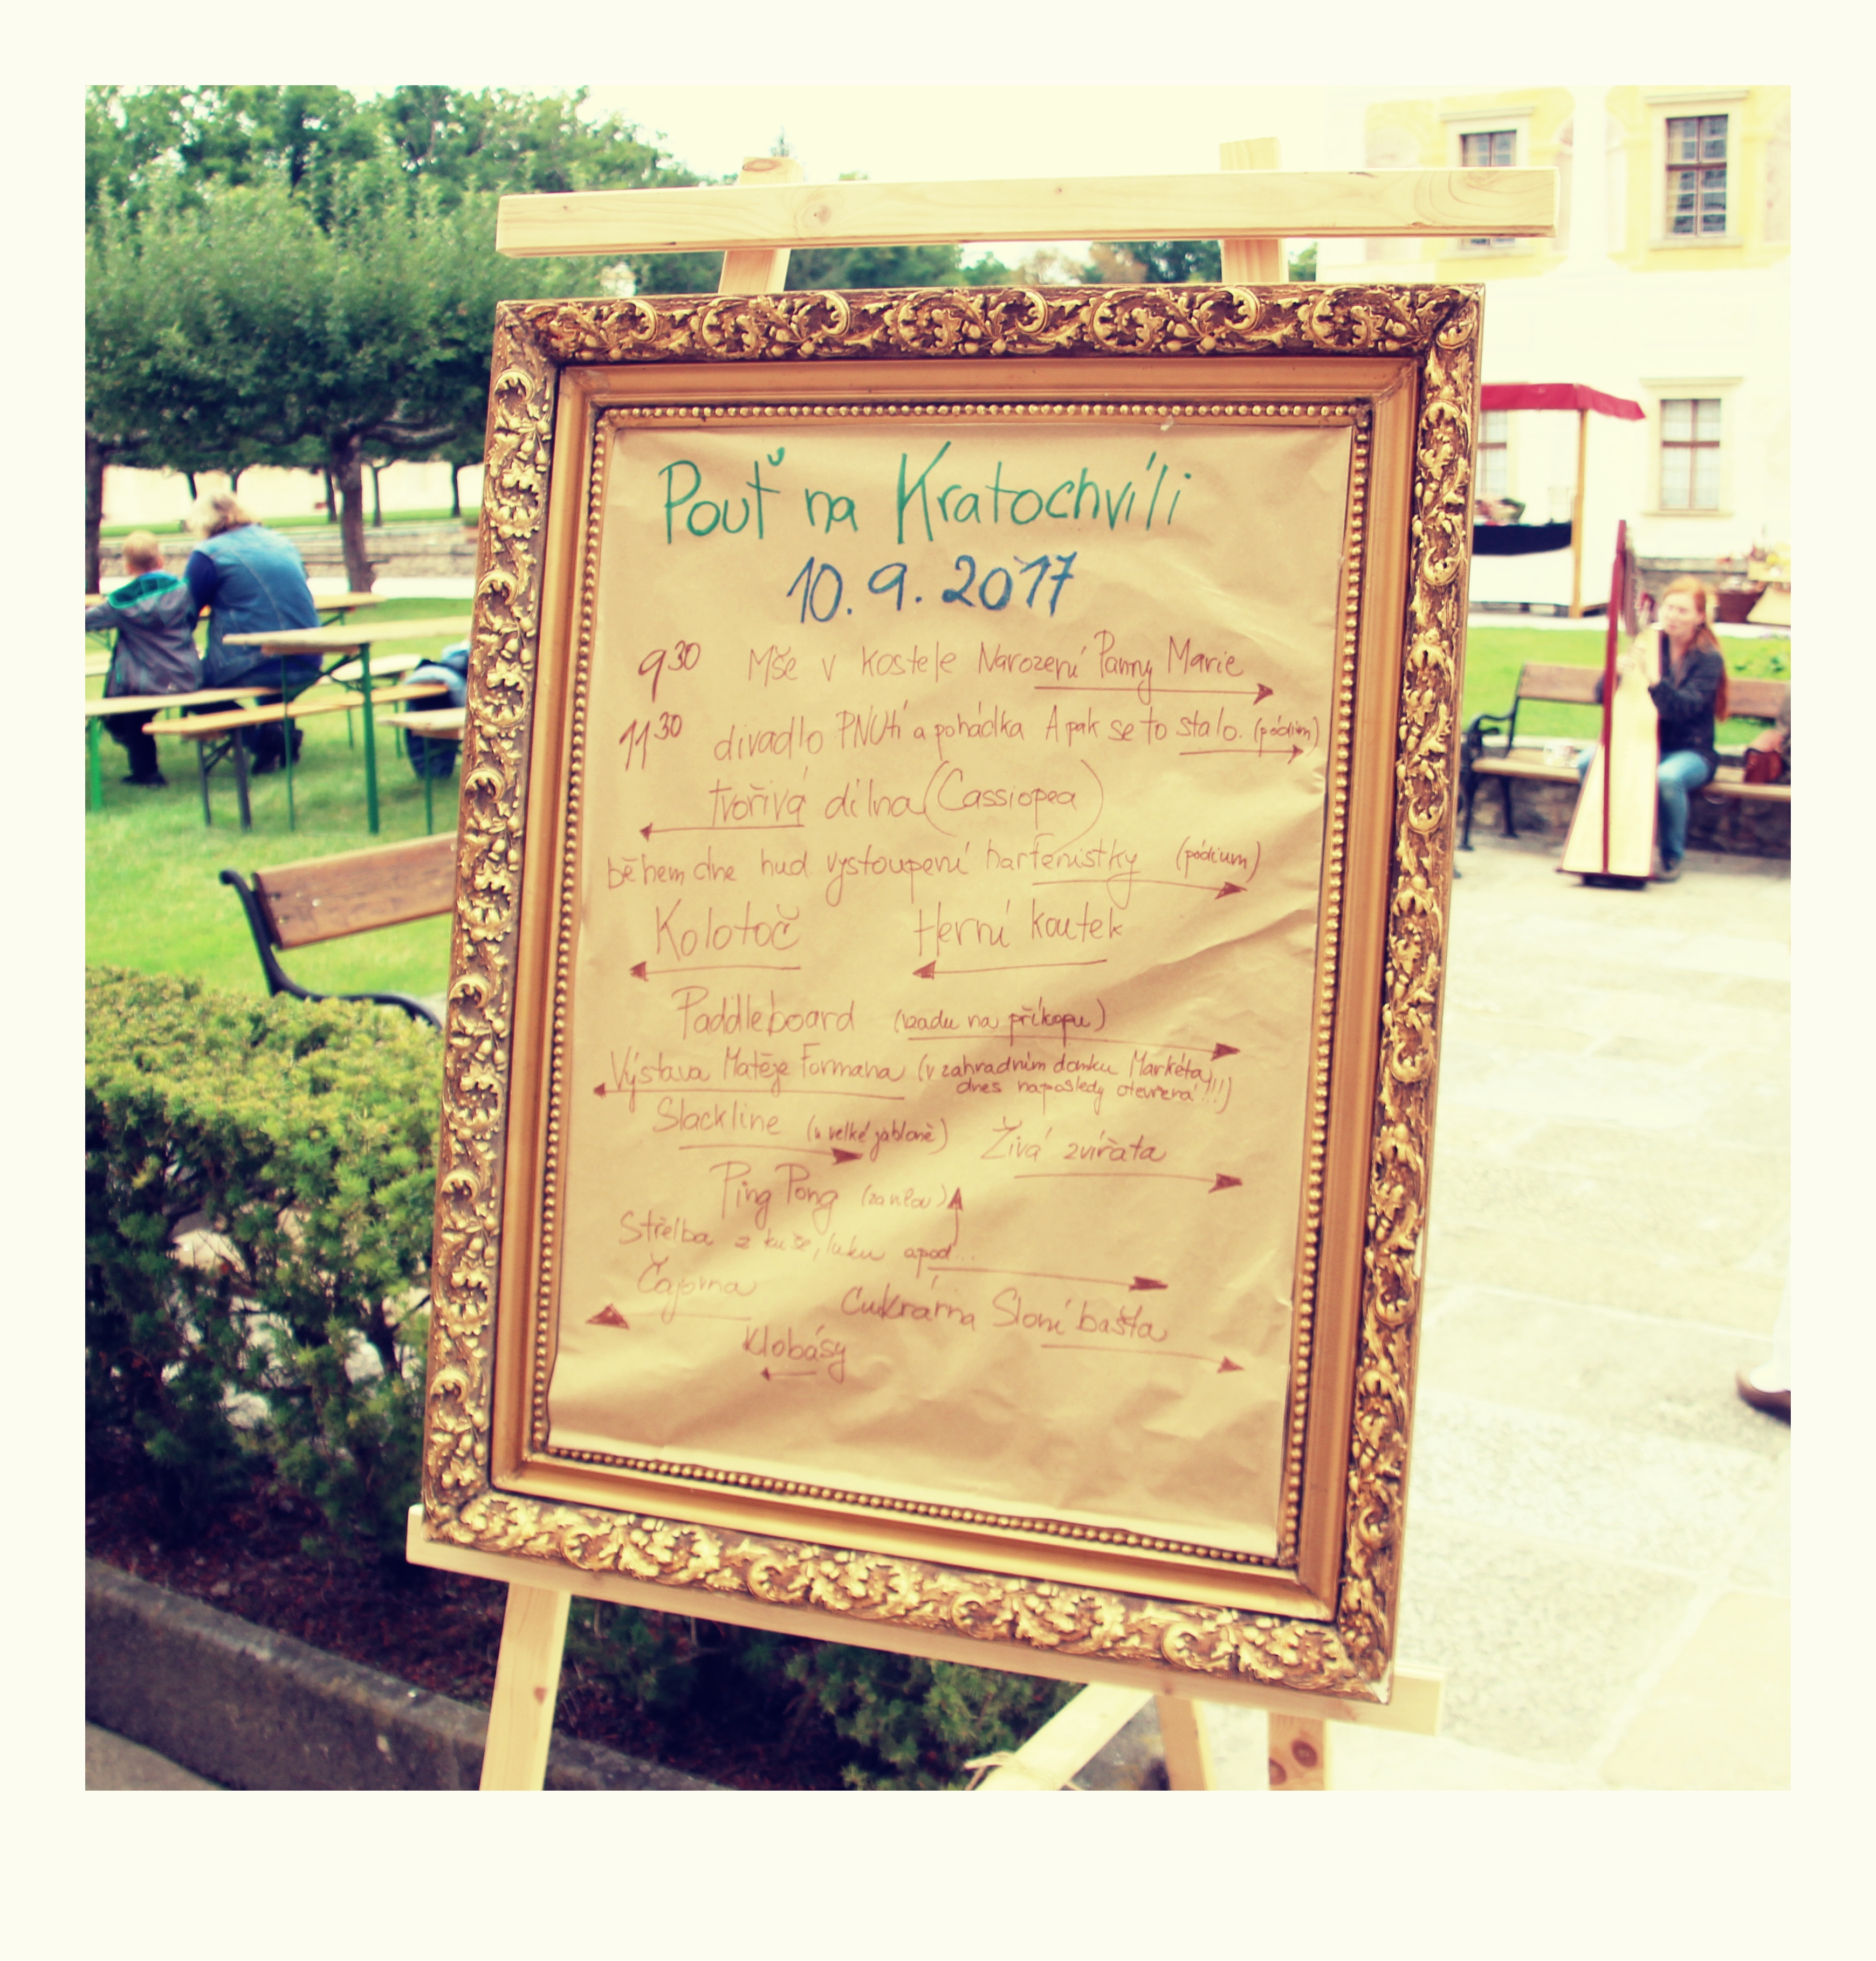 Pouť na Kratochvíli
10.9.2017
9³⁰ Mše v kostele Narození Panny Marie
11³⁰ divadlo PNUtí a pohádka A pak se to stalo. (pódium)
tvořivá dílna (Cassiopea)
během dne hud vystoupení harfenistky (pódium)
Kolotoč Herní koutek
Paddleboard (vzadu na příkopu)
Výstava Matěje Formana (v zahradním domku Markéta
dnes naposledy otevřená!!!)
Slackline (u velké jabloně) Živá zvířata
Ping Pong
Střelba z kuše, luku apod...
Čajovna
Cukrárna Sloní bašta
Klobásy